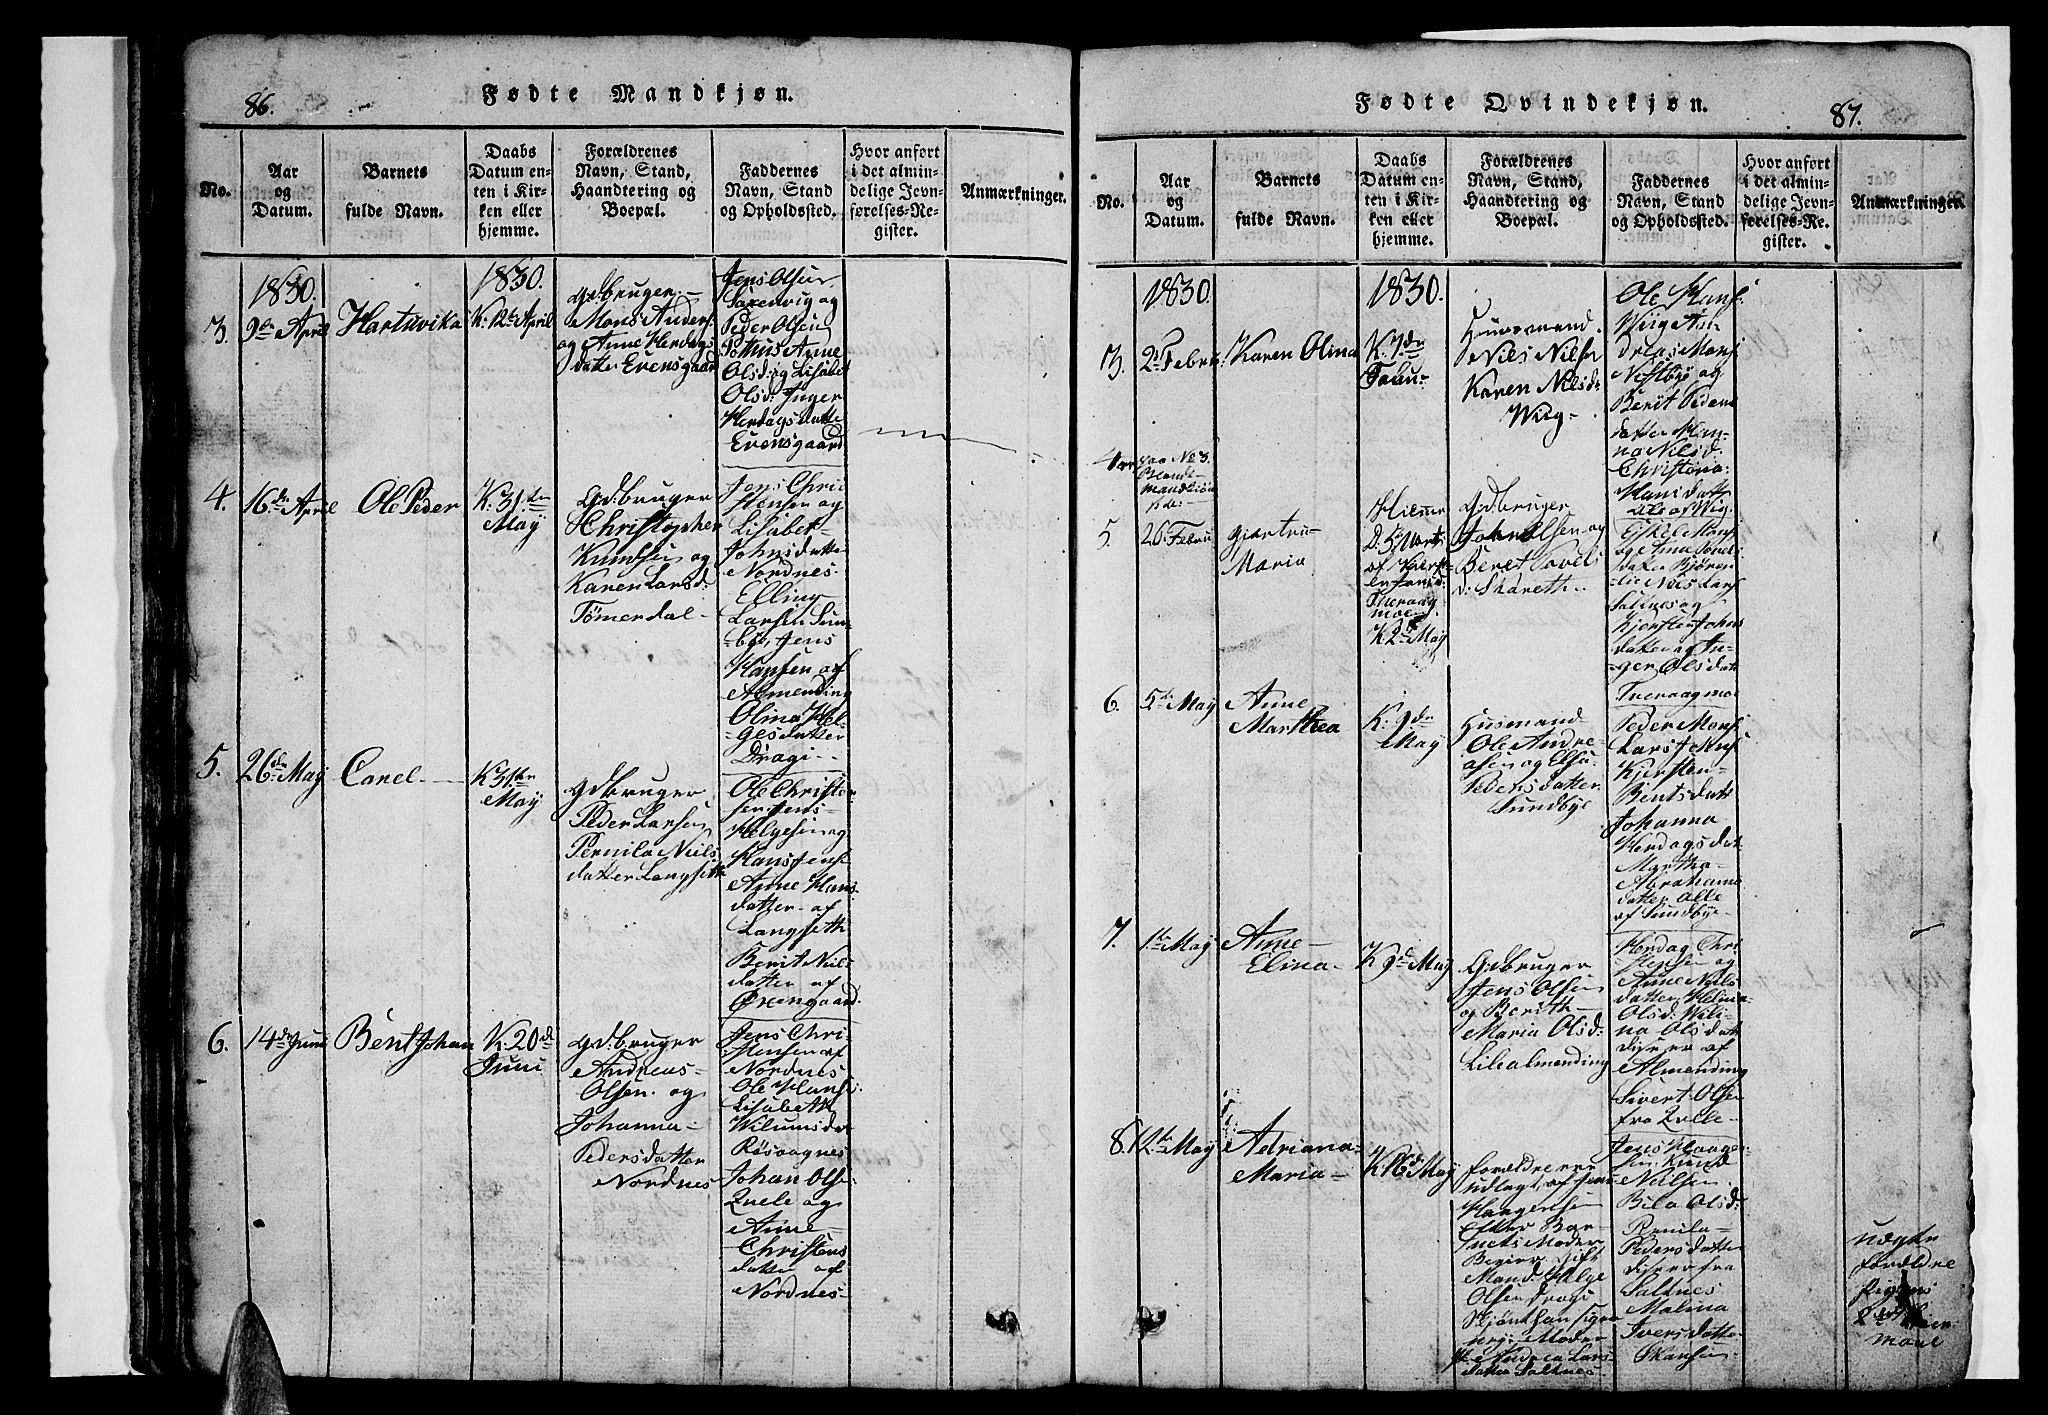 86.
Fødte Mandkjøn.
No.
Aar
og
Datum.
Barnets
fulde Navn.
Daabs
Datum en-
ten i Kir-
ken eller
hjemme.
Forældrenes
Navn, Stand,
Haandtering og
Boepæl.
Faddernes
Navn, Stand
og Opholdssted.
Hvor anført
i det almin-
delige Jevn-
førelses-Re-
gister.
Anmærkninger.
1830.
3.
9de April
Hartuvika
1830.
K: 12te April
Gdbruger
Mons Anders:
og Anne Herdags
datter Evensgaard
Jens Olsen
Saxenvig og
Peder Olsen
Anne
Olsd: og Lisabet
Olsd: Inger
Herdagsdatter
Evensgaard
4.
16de April
Ole Peder
K: 31te
May
Gdbruger
Christopher
Knudsen og
Karen Larsd:
Tømerdal
Jens Chris
tensen og
Lisabet
Johnsdatter
Nordnes
Elling
Larsen Sun-
bø, Jens
Hansen af
Almending
Olina Hel-
gesdatter
Dragi
5.
26de May
Carel
K 31te
May
Gdbruger
Peder Larsen
Pernila Niels
datter Langseth
Ole Christen
sen Jens
Helgesen og
Hans Jens:
Anne Hans
datter af
Langseth
Berit Niels
datter af
Øxengaard
6.
14de Juni
Bent Johan
K: 20de
Juni
Gdbruger
Andreas
Olsen og
Johanna
Pedersdatter
Nordnes
Jens Chri-
stensen af
Nordnes
Ole Hans:
Lisabeth
Wilumsdr
Røsaagnes
Johan Olse
Qvele og
Anne
Christens
datter af
Nordnes
Fødte Qvindekjøn.
87.
No.
Aar
og
Datum.
Barnets
fulde Navn.
Daabs
Datum en-
ten i Kir-
ken eller
hjemme.
Forældrenes
Navn, Stand,
Haandtering og
Boepæl.
Faddernes
Navn, Stand
og Opholdssted.
Hvor anført
i det almin-
delige Jevn-
førelses-Re-
gister.
Anmærkninger.
1830.
3.
2de Febru:
Karen Olina
1830.
K. 7de
Febru:
Huusmand
Niels Nilsen
Karen Nilsd:
Wiig
Ole Hans:
Wiig An-
dreas Mons:
Vestbye og
Berit Peders
datter
Nilsd:
Christena
Hansdatt
alle af Wig
4
paa No 3.
Blandt
mandkiøn
5.
26 Febru
Giertru
Maria
Hiemme
D: 5 Marts
af
K 2de May
Gdbruger
John Olsen og
Beret
d: Skareth
Eskel Mons
og Anna
datter
Niels Lars
Saltnes og
Kjersten Johns
datter og In-
ger Olsdatt
6.
5de May
Anne
Marthea
K: 9de
May
Husmand
Ole Andre-
asen og Else
Pedersdatter
Sundbye
Peder Mons:
Lars Johns:
Kjersten
Bentsdatt
Johanna
Herdagsdat
Martha
Abrahams
datter alle
af Sundbye
7.
1te May
Anne
Elina
K 9de May
Gdbruger
Jens Olsen
og Berith
Maria Olsd:
Lilealmending
Herdag Chri
stensen og
Anne Niels
datter Helina
Olsd: Wili-
na Olsdatt
disse er af
Almending
Sivert Olsen
fra Qvele
8.
12te May
Adriana
Maria
K 16de May
Forældrene er
udlagt af Jens
Haagensen
efter Bar-
nets Moder
Begiær gift
Mand Helge
Olsen Dragi
Andrea Lars
datter Saltnes
Jens Haagen-
sen Knud
Nielsen
Bila Olsd:
Pernila
Pedersdatter
disse er fra
Saltnes
Malina
Iversdatter
Skansen
uægte
forældre
pigens
2det Leier-
maal